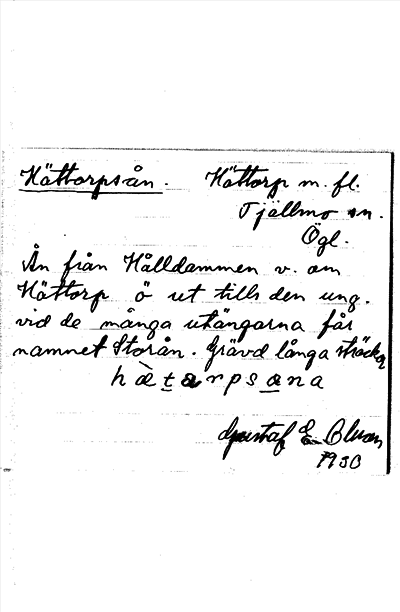 Hättorpsån. Hättorp m. fl.
Tjällmo sn.
Ögl.
Ån från Hålldammen v. om
Hättorp ö ut tills den ung.
vid de många utängarna får
namnet Storån. Grävd långa sträckor
Gustaf E
1930